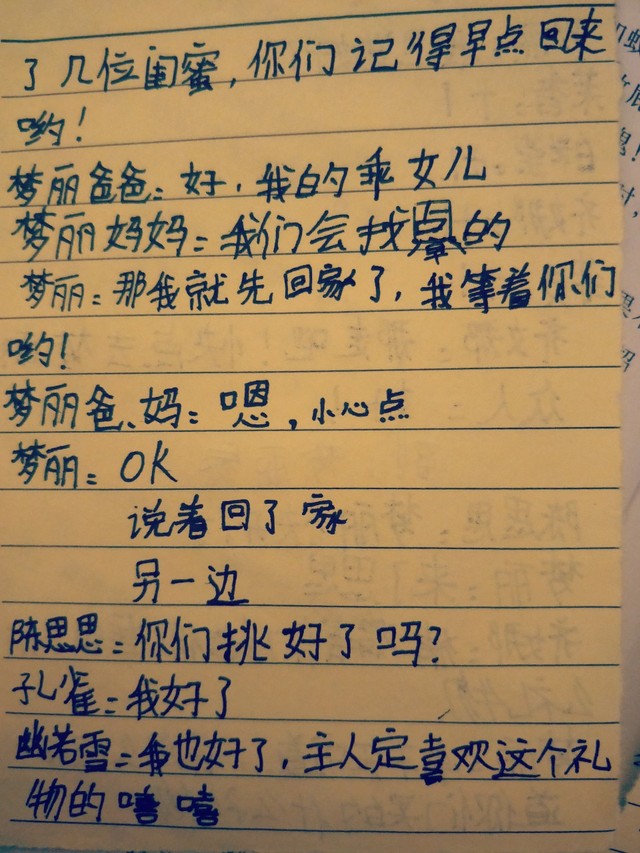 了几位闺蜜，你们记得早点回来
哟！
梦丽爸爸：好，我的乖女儿
梦丽妈妈：我们会找的
梦丽：那我就先回家了，我等着你们
哟！
梦丽爸、妈：嗯，小心点
梦丽：OK
说着回了家
另一边
陈思思：你们挑好了吗？
孔雀：我好了
幽若雪：我也好了，主人定喜欢这个礼
物的嘻嘻